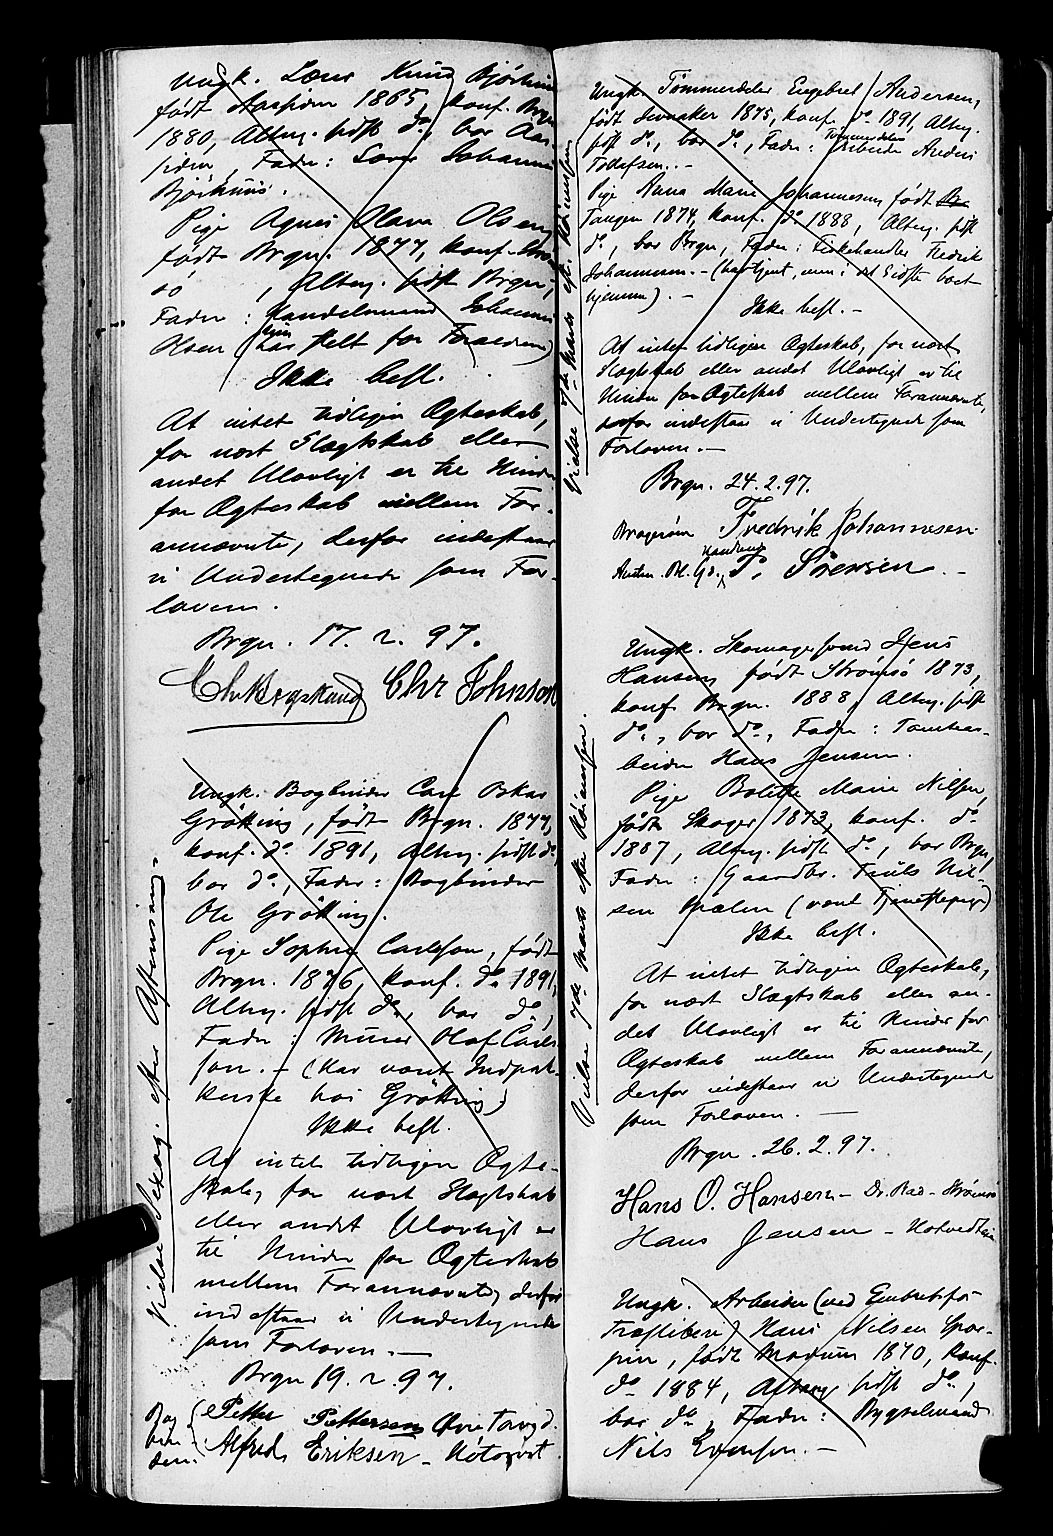 Ungk. Lars Knud Bjørhuus
født Aaspiden 1865, konf. Brgn
1880, Altrg. sidst do, bor Aas-
piden, Fader: Lars Johannes
Bjørhuus.
Pige Agnes Olava Olsen,
født Brgn. 1877, konf.
do, Altrg. sidst Brgn,
Fader: Handelsmand Johannes
Olsen (har stelt for Forældrene)
Ikke besl.
At intet tidligere Ægteskab,
for nært Slægtskab eller
andet Ulovligt er til Hinder
for Ægteskab mellem For-
annævnte, derfor indestaar
vi Undertegnede som For-
lovere.
Brgn. 17. 2. 97.
Chr Johnson
Vielse Sexag. efter Aftensang.
Ungk. Bogbinder Carl Oskar
Grøtting, født Brgn. 1877,
konf. do 1891, Altrg. sidst do
bor do, Fader: Bogbinder
Ole Grøtting.
Pige Sophie Carlsson, født
Brgn. 1876, konf. do 1891,
Altrg. sidst do, bor do,
Fader: Murer Olaf Carls-
son. – (har været Indpak-
kerske hos Grøtting)
Ikke besl.
At intet tidligere Ægte-
skab, for nært Slægtskab
eller andet Ulovligt er
til Hinder for Ægteskab
mellem Forannævnte, derfor
indestaar vi Undertegnede
som Forlovere. –
Brgn 19. 2. 97.
Bog-
bin-
dere
Petter Pettersen Øvre Torvgd.
Alfred Eriksen –
Vielse 7de Marts eft. Høimessen
Ungk. Tømmerdeler Engebret Andersen,
født 1875, konf. do 1891, Altrg.
sidst do, bor do, Fader: Tømmerdeler Arbeider Anders
Tollafsen. –
Pige Anna Marie Johannesen, født Br
Tangen 1874, konf. do 1888, Altrg. sidst
do, bor Brgn, Fader: Fiskehandler Fredrik
Johannesen. – (har tjent, men i det Sidste været
hjemme). –
Ikke besl. –
At intet tidligere Ægteskab, for nært
Slægtskab eller andet Ulovligt er til
Hinder for Ægteskab mellem Forannævnte,
derfor indestaar vi Undertegnede som
Forlovere. –
Brgn. 24. 2. 97.
Bragerøen Fredrik Johannesen
P. Sörensen. –
Vielse 7de Marts efter Høimessen.
Ungk. Skomagersvend Jens
Hansen, født Strømsø 1873,
konf. Brgn. 1888, Altrg. sidst
do, bor do, Fader: Tomtear-
beider Hans Jensen.
Pige Bolette Marie Nilsen,
født Skoger 1873, konf. do
1887, Altrg. sidst do, bor Brgn,
Fader: Gaardbr. Truls Nil-
sen (været Tjenestepige)
Ikke besl.
At intet tidligere Ægteskab,
for nært Slægtskab eller an-
det Ulovligt er til Hinder for
Ægteskab mellem Forannævnte,
derfor indestaar vi Undertegnede
som Forlovere. –
Brgn. 26. 2. 97.
Hans O. Hansen – Strømsø
Hans Jensen –
Ungk. Arbeider (ved Embretsfos
Træsliberi) Hans Nilsen
født Modum 1870, konf.
do 1884, Altrg. sidst do,
bor do, Fader: Bygselmand
Nils Evensen. –